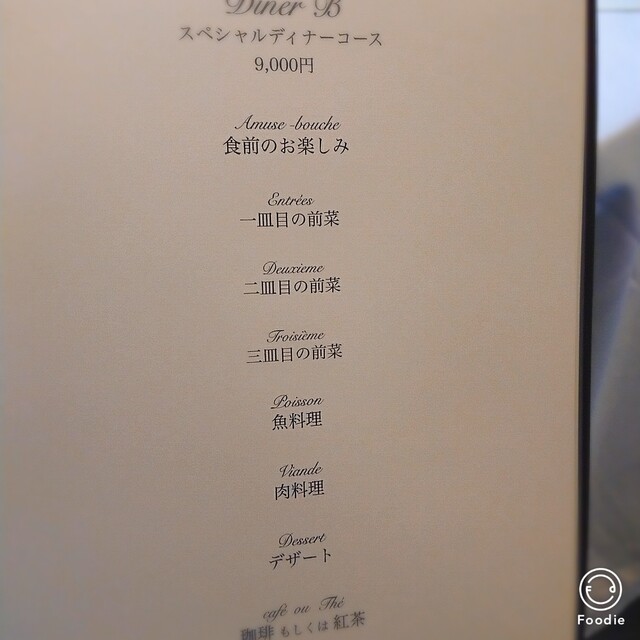 Diner B
スペシャルディナーコース
9,000円
Amuse-bouche
食前のお楽しみ
Entrées
一皿目の前菜
Deuxieme
二皿目の前菜
Troisième
三皿目の前菜
Poisson
魚料理
Viande
肉料理
Dessert
デザート
café ou Thé
珈琲 もしくは 紅茶
Foodie